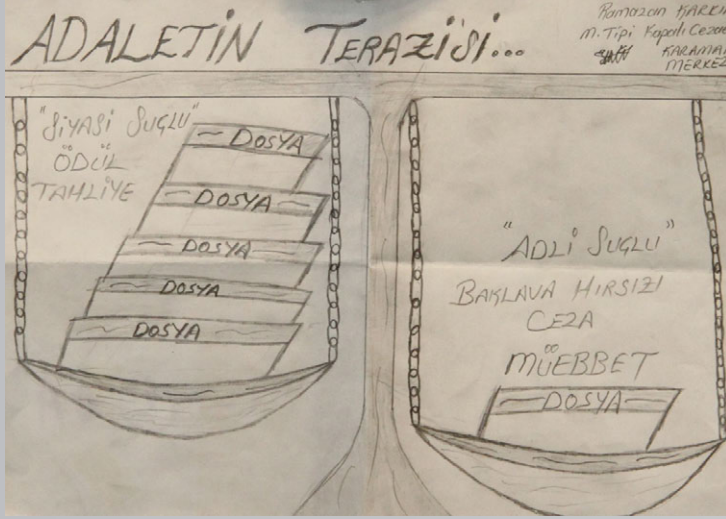 ADALETİN TERAZİSİ...
Ramazan
M. Tipi Kapalı
MERKEZ
"SİYASİ SUÇLU"
ÖDÜL
TAHLİYE
DOSYA
DOSYA
DOSYA
DOSYA
DOSYA
"ADLİ SUÇLU"
BAKLAVA HIRSIZI
CEZA
MÜEBBET
DOSYA